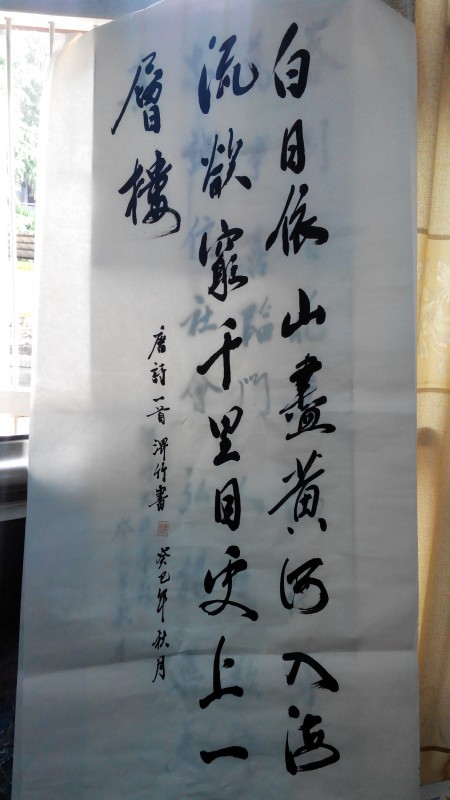 白日依山盡黃河入海
流欲窮千里目更上一
層樓
唐詩一首 渊竹書 癸巳年秋月